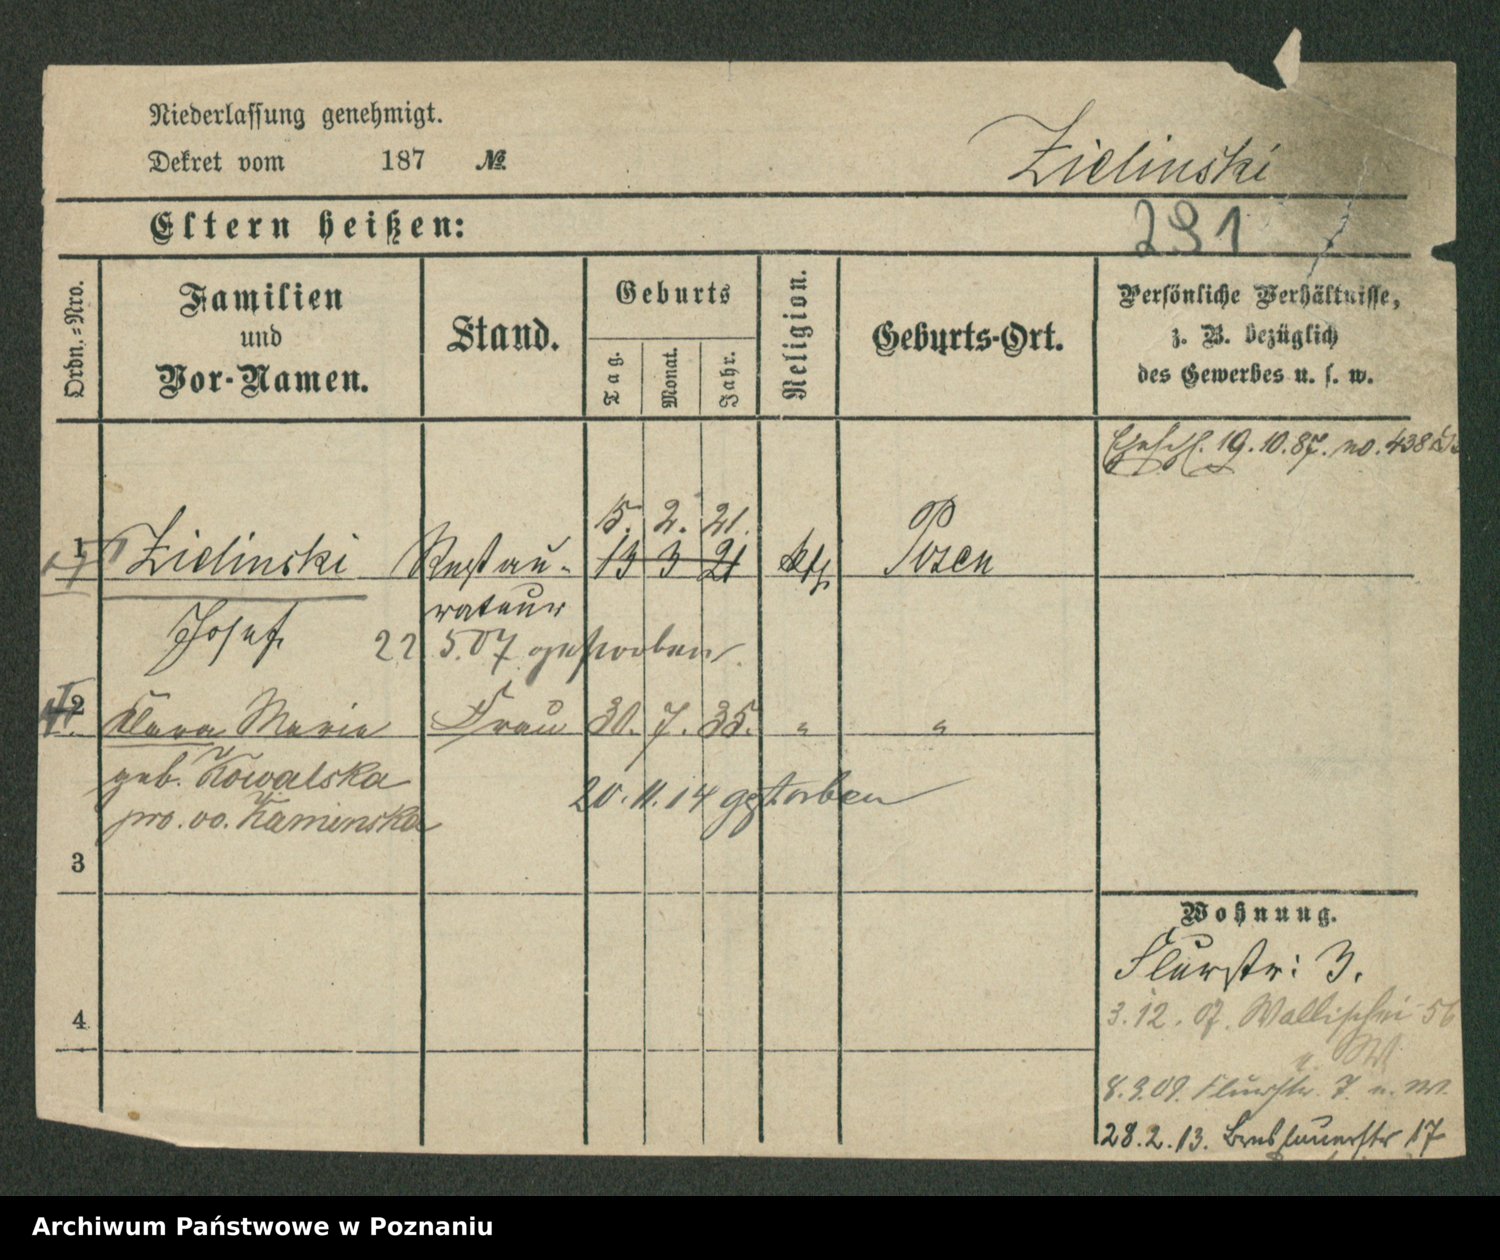 Niederlassung genehmigt.
Dekret vom 187 №
Zielinski
Eltern heißen:
291
Ordn.=Nro.
Familien
und
Vor-Namen.
Stand.
Geburts
Tag.
Monat.
Jahr.
Religion.
Geburts-Ort.
Persönliche Verhältnisse,
z. B. bezüglich
des Gewerbes u. s. w.
Eheschl. 19.10.87. no. 438
15. 2. 21.
1 Zielinski Restau- 13 3 21 kth Posen
rateur
Josef
22 5.07 gestorben
2 Clara Marie Frau 30. 7. 35. " "
geb. Kowalska
pro. vo. Kaminska
20.11.14 gestorben
3
Wohnung.
Flurstr: 3.
3.12.07. Wallischei 56
4
8.9.09. Flurstr. 7
28.2.13. Breslauerstr 17
Archiwum Państwowe w Poznaniu